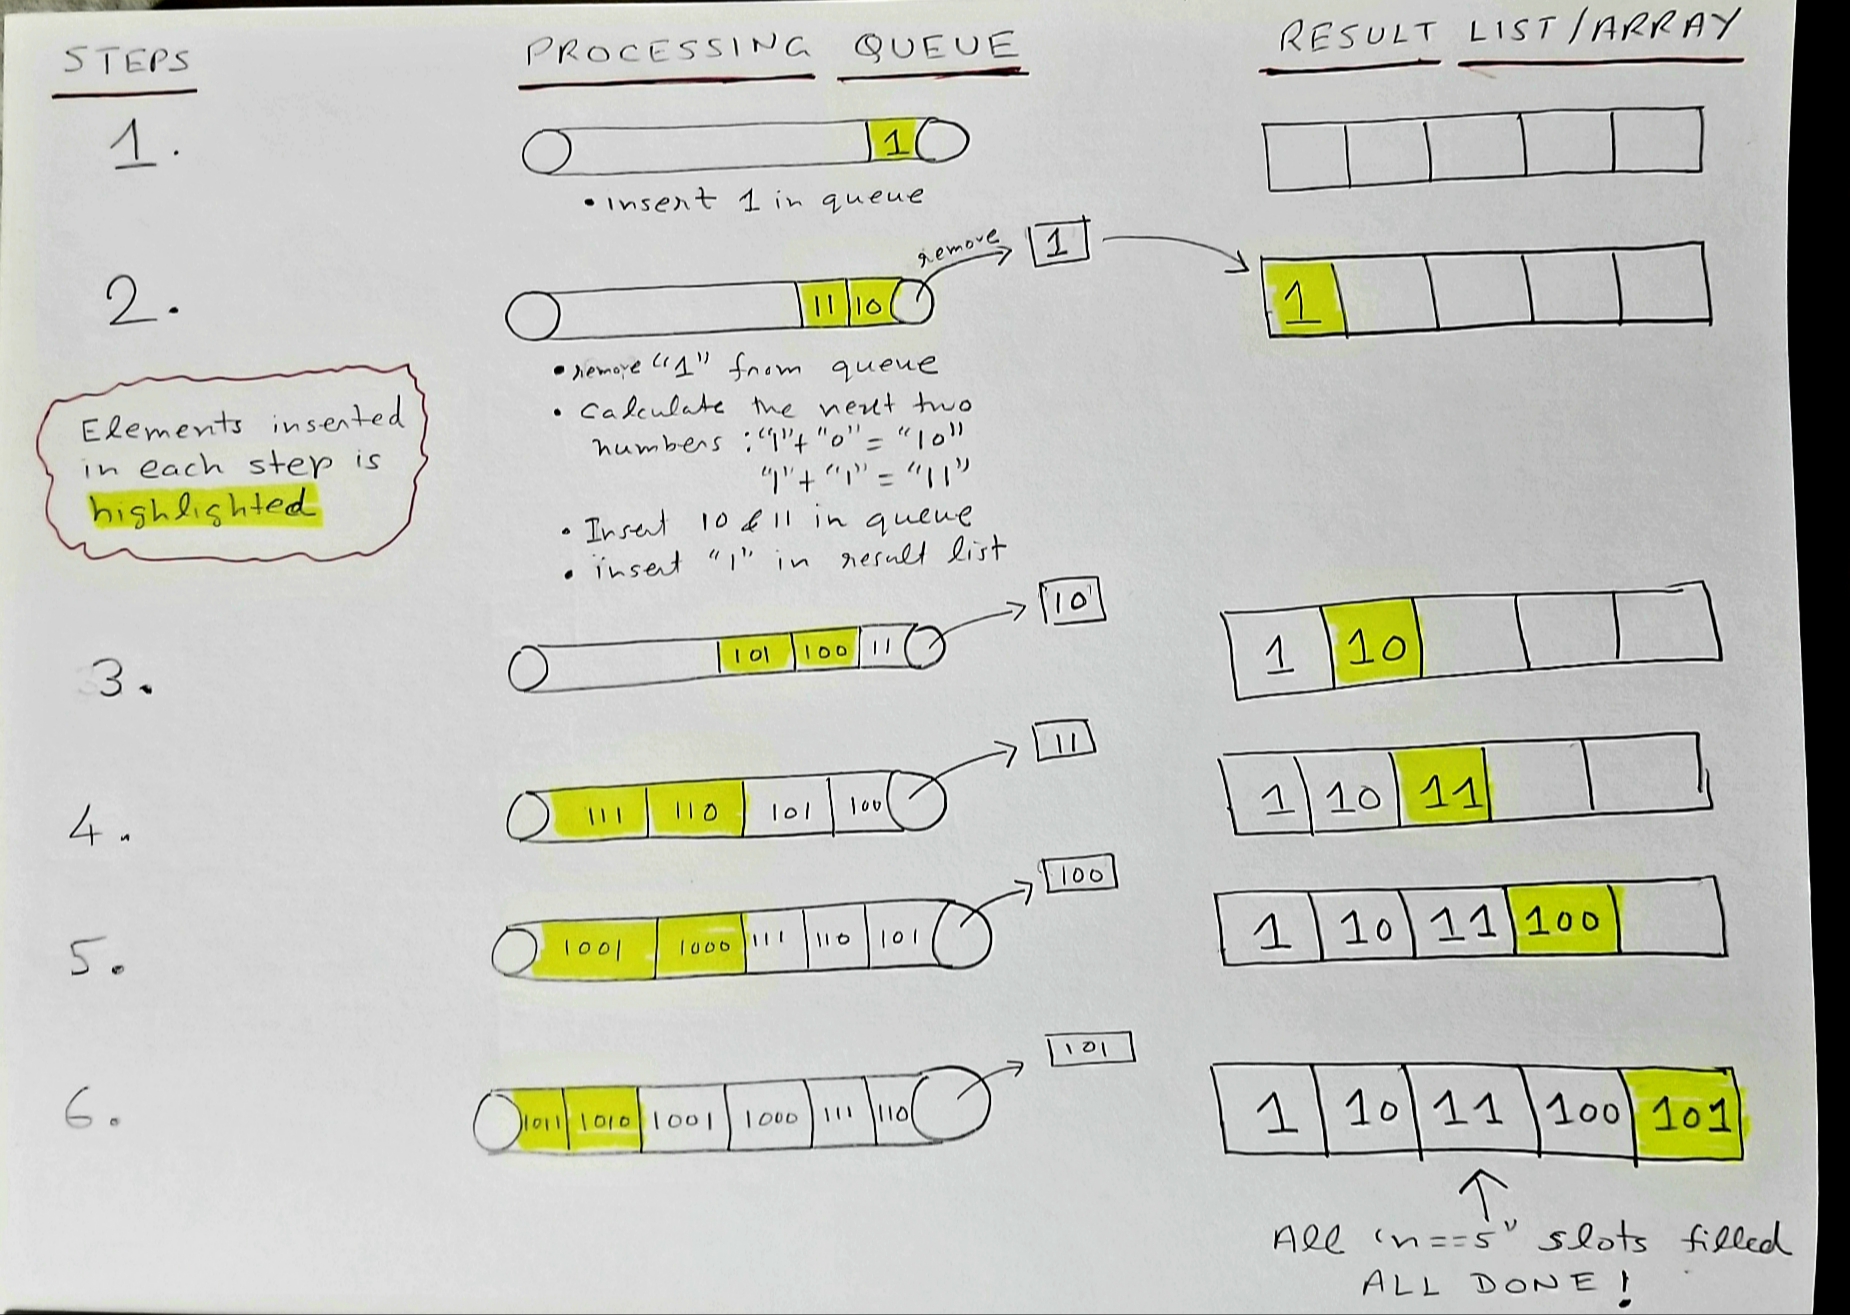 STEPS
PROCESSING QUEUE
RESULT LIST/ARRAY
1.
1
• insert 1 in queue
2.
11 10
remove
1
1
• remove "1" from queue
• Calculate the next two
numbers : "1" + "0" = "10"
"1" + "1" = "11"
• Insert 10 & 11 in queue
• insert "1" in result list
Elements inserted
in each step is
highlighted
3.
101 100 11
10
1 10
4.
111 110 101 100
11
1 10 11
5.
1001 1000 111 110 101
100
1 10 11 100
6.
1011 1010 1001 1000 111 110
101
1 10 11 100 101
All "n==5" slots filled
ALL DONE!